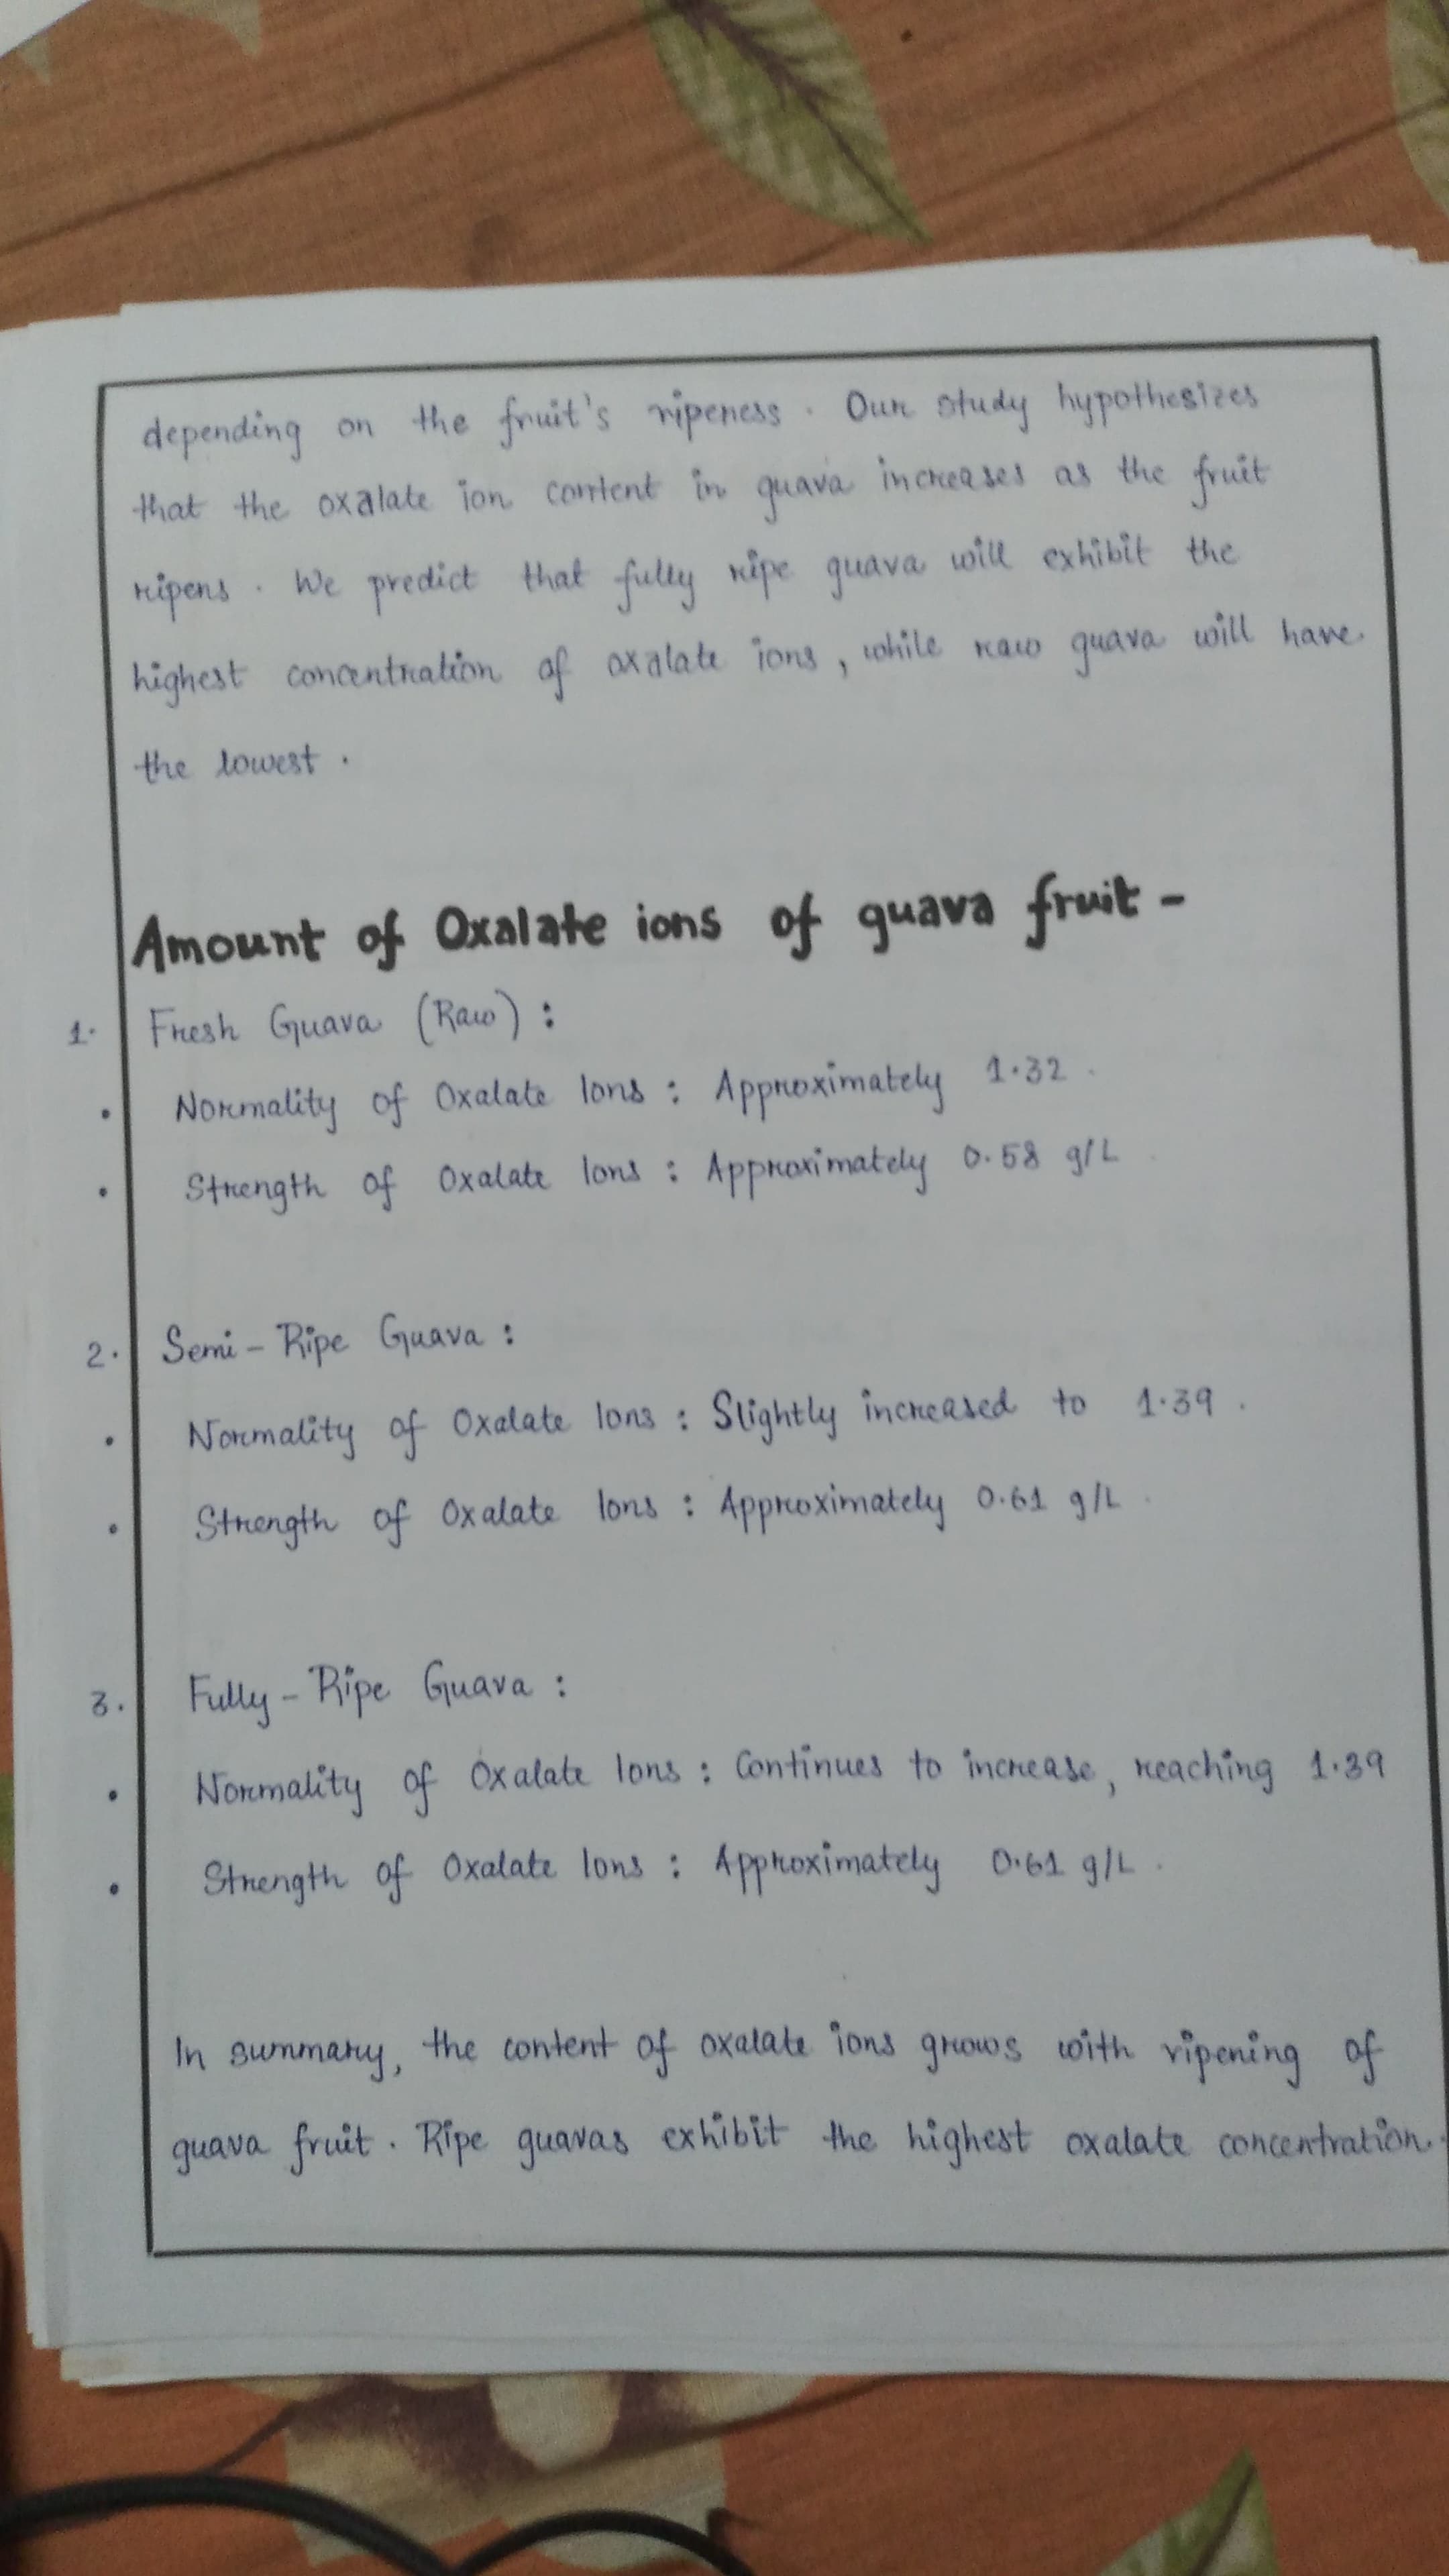 depending on the fruit's ripeness. Our study hypothesizes
that the oxalate ion content in guava increases as the fruit
ripens. We predict that fully ripe guava will exhibit the
highest concentration of oxalate ions, while raw guava will have
the lowest.
Amount of Oxalate ions of guava fruit -
1. Fresh Guava (Raw) :
• Normality of Oxalate Ions : Approximately 1.32.
• Strength of Oxalate Ions : Approximately 0.58 g/L.
2. Semi-Ripe Guava :
• Normality of Oxalate Ions : Slightly increased to 1.39.
• Strength of Oxalate Ions : Approximately 0.61 g/L.
3. Fully-Ripe Guava :
• Normality of Oxalate Ions : Continues to increase, reaching 1.39
• Strength of Oxalate Ions : Approximately 0.61 g/L.
In summary, the content of oxalate ions grows with ripening of
guava fruit. Ripe guavas exhibit the highest oxalate concentration.